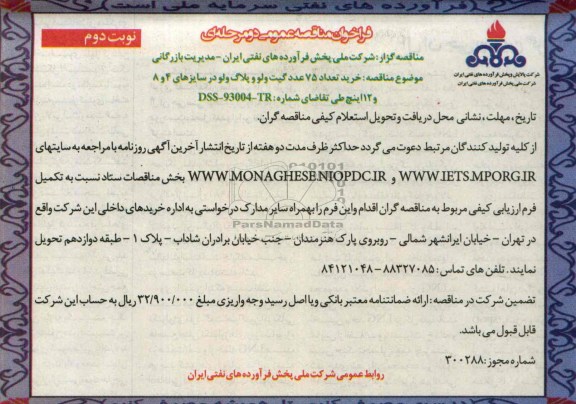 فرآورده های نفتی سرمایه ملی است
فراخوان مناقصه عمومی دو مرحله‌ای
نوبت دوم
شرکت پالایش و پخش فرآورده های نفتی ایران
شرکت ملی پخش فرآورده های نفتی ایران
مناقصه گزار: شرکت ملی پخش فرآورده های نفتی ایران - مدیریت بازرگانی
موضوع مناقصه: خرید تعداد ۷۵ عدد گیت ولو و پلاگ ولو در سایزهای ۴ و ۸
و ۱۲ اینچ طی تقاضای شماره: DSS-93004-TR
تاریخ، مهلت، نشانی محل دریافت و تحویل استعلام کیفی مناقصه گران.
از کلیه تولید کنندگان مرتبط دعوت می گردد حداکثر ظرف مدت دو هفته از تاریخ انتشار آخرین آگهی روزنامه با مراجعه به سایتهای
WWW.IETS.MPORG.IR و WWW.MONAGHESE.NIOPDC.IR بخش مناقصات ستاد نسبت به تکمیل
فرم ارزیابی کیفی مربوط به مناقصه گران اقدام و این فرم را بهمراه سایر مدارک درخواستی به اداره خریدهای داخلی این شرکت واقع
در تهران - خیابان ایرانشهر شمالی - روبروی پارک هنرمندان - جنب خیابان برادران شاداب - پلاک ۱ - طبقه دوازدهم تحویل
نمایند. تلفن های تماس: ۸۸۳۲۷۰۸۵ - ۸۴۱۲۱۰۴۸
تضمین شرکت در مناقصه: ارائه ضمانتنامه معتبر بانکی و یا اصل رسید وجه واریزی مبلغ ۳۲/۹۰۰/۰۰۰ ریال به حساب این شرکت
قابل قبول می باشد.
شماره مجوز: ۳۰۰۲۸۸
روابط عمومی شرکت ملی پخش فرآورده های نفتی ایران
ParsNamadData